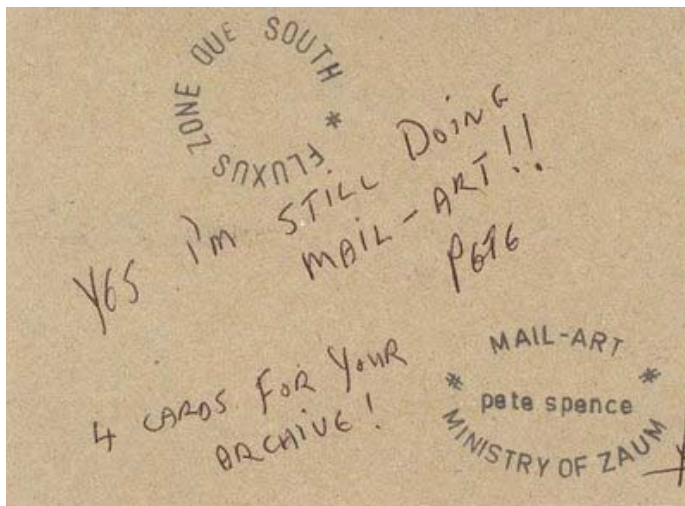 FLUXUS ZONE QUE SOUTH *
YES I'M STILL DOING
MAIL-ART!!
PETE
4 CARDS FOR YOUR
ARCHIVE!
MAIL-ART
* pete spence *
MINISTRY OF ZAUM